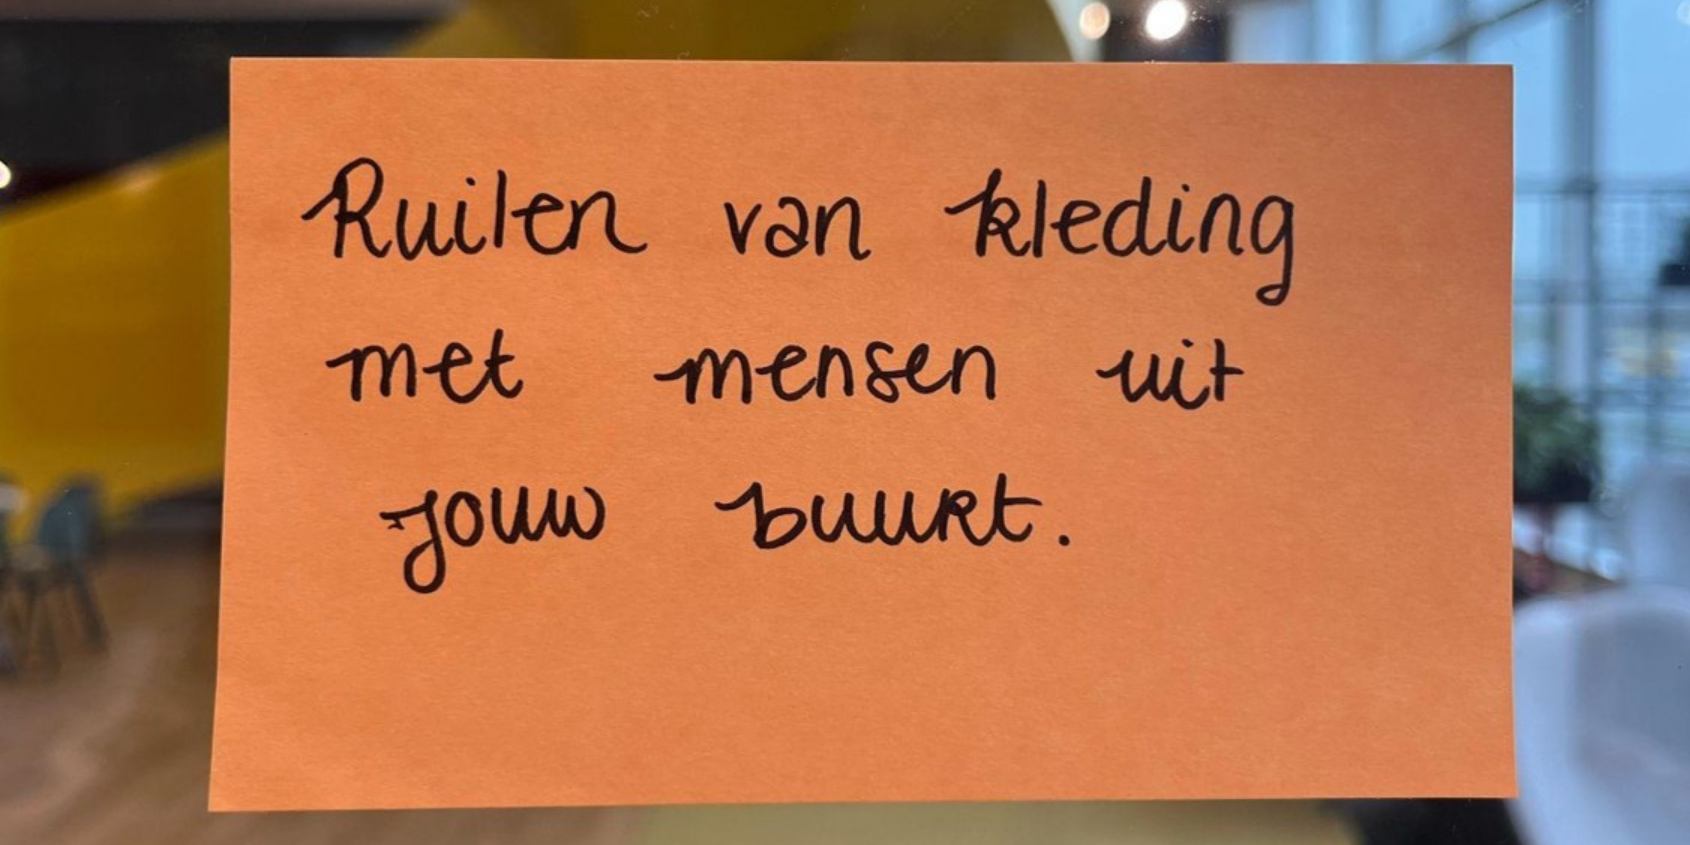 Ruilen van kleding
met mensen uit
jouw buurt.